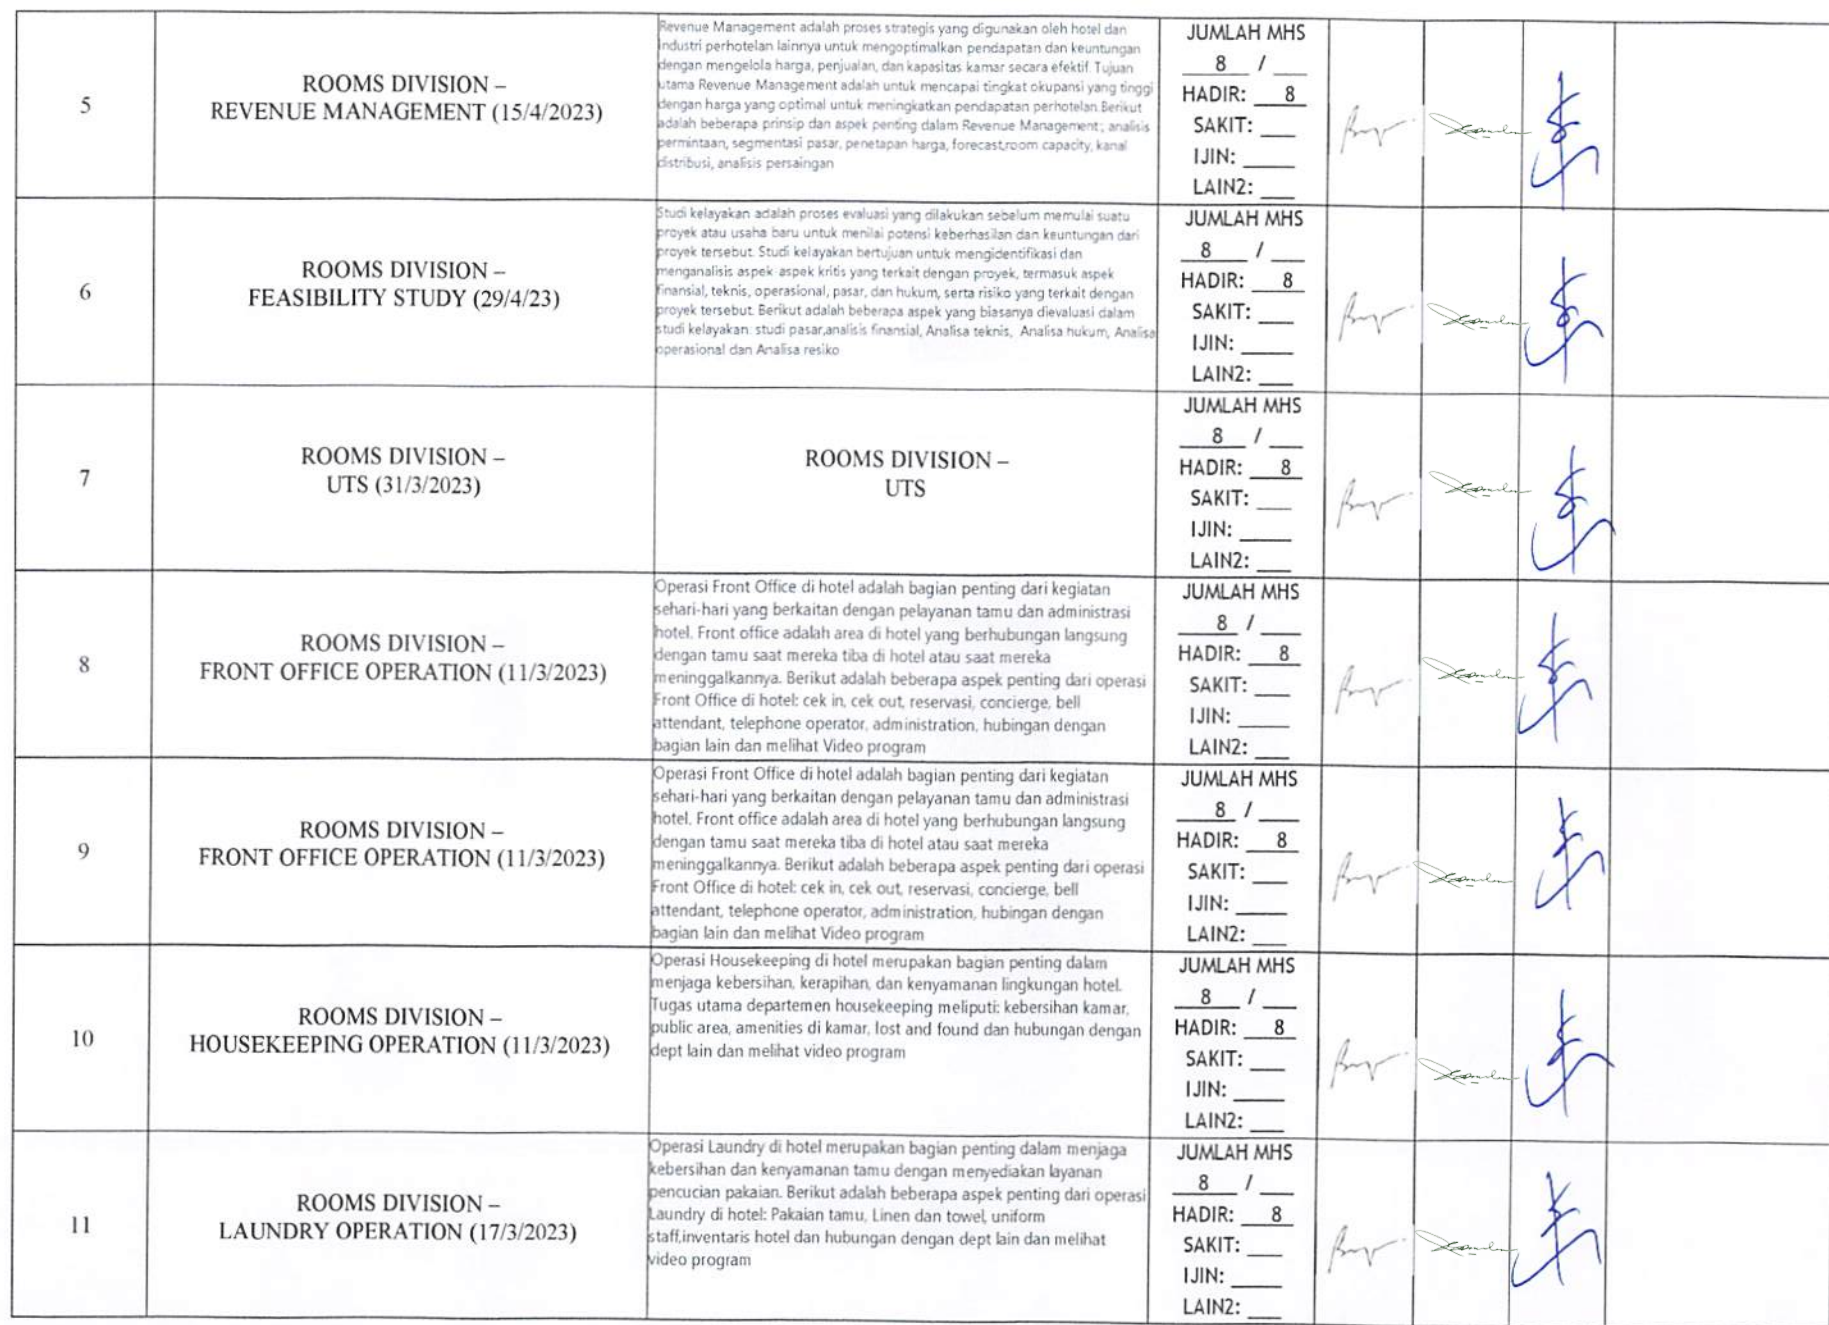 5
ROOMS DIVISION –
REVENUE MANAGEMENT (15/4/2023)
Revenue Management adalah proses strategis yang digunakan oleh hotel dan
industri perhotelan lainnya untuk mengoptimalkan pendapatan dan keuntungan
dengan mengelola harga, penjualan, dan kapasitas kamar secara efektif. Tujuan
utama Revenue Management adalah untuk mencapai tingkat okupansi yang tinggi
dengan harga yang optimal untuk meningkatkan pendapatan perhotelan Berikut
adalah beberapa prinsip dan aspek penting dalam Revenue Management; analisis
permintaan, segmentasi pasar, penetapan harga, forecast,room capacity, kanal
distribusi, analisis persaingan
JUMLAH MHS
8 / ___
HADIR: 8
SAKIT: ___
IJIN: ___
LAIN2: ___
6
ROOMS DIVISION –
FEASIBILITY STUDY (29/4/23)
Studi kelayakan adalah proses evaluasi yang dilakukan sebelum memulai suatu
proyek atau usaha baru untuk menilai potensi keberhasilan dan keuntungan dari
proyek tersebut. Studi kelayakan bertujuan untuk mengidentifikasi dan
menganalisis aspek-aspek kritis yang terkait dengan proyek, termasuk aspek
finansial, teknis, operasional, pasar, dan hukum, serta risiko yang terkait dengan
proyek tersebut. Berikut adalah beberapa aspek yang biasanya dievaluasi dalam
studi kelayakan: studi pasar,analisis finansial, Analisa teknis, Analisa hukum, Analisa
operasional dan Analisa resiko
JUMLAH MHS
8 / ___
HADIR: 8
SAKIT: ___
IJIN: ___
LAIN2: ___
7
ROOMS DIVISION –
UTS (31/3/2023)
ROOMS DIVISION –
UTS
JUMLAH MHS
8 / ___
HADIR: 8
SAKIT: ___
IJIN: ___
LAIN2: ___
8
ROOMS DIVISION –
FRONT OFFICE OPERATION (11/3/2023)
Operasi Front Office di hotel adalah bagian penting dari kegiatan
sehari-hari yang berkaitan dengan pelayanan tamu dan administrasi
hotel. Front office adalah area di hotel yang berhubungan langsung
dengan tamu saat mereka tiba di hotel atau saat mereka
meninggalkannya. Berikut adalah beberapa aspek penting dari operasi
Front Office di hotel: cek in, cek out, reservasi, concierge, bell
attendant, telephone operator, administration, hubingan dengan
bagian lain dan melihat Video program
JUMLAH MHS
8 / ___
HADIR: 8
SAKIT: ___
IJIN: ___
LAIN2: ___
9
ROOMS DIVISION –
FRONT OFFICE OPERATION (11/3/2023)
Operasi Front Office di hotel adalah bagian penting dari kegiatan
sehari-hari yang berkaitan dengan pelayanan tamu dan administrasi
hotel. Front office adalah area di hotel yang berhubungan langsung
dengan tamu saat mereka tiba di hotel atau saat mereka
meninggalkannya. Berikut adalah beberapa aspek penting dari operasi
Front Office di hotel: cek in, cek out, reservasi, concierge, bell
attendant, telephone operator, administration, hubingan dengan
bagian lain dan melihat Video program
JUMLAH MHS
8 / ___
HADIR: 8
SAKIT: ___
IJIN: ___
LAIN2: ___
10
ROOMS DIVISION –
HOUSEKEEPING OPERATION (11/3/2023)
Operasi Housekeeping di hotel merupakan bagian penting dalam
menjaga kebersihan, kerapihan, dan kenyamanan lingkungan hotel.
Tugas utama departemen housekeeping meliputi: kebersihan kamar,
public area, amenities di kamar, lost and found dan hubungan dengan
dept lain dan melihat video program
JUMLAH MHS
8 / ___
HADIR: 8
SAKIT: ___
IJIN: ___
LAIN2: ___
11
ROOMS DIVISION –
LAUNDRY OPERATION (17/3/2023)
Operasi Laundry di hotel merupakan bagian penting dalam menjaga
kebersihan dan kenyamanan tamu dengan menyediakan layanan
pencucian pakaian. Berikut adalah beberapa aspek penting dari operasi
Laundry di hotel: Pakaian tamu, Linen dan towel, uniform
staff,inventaris hotel dan hubungan dengan dept lain dan melihat
video program
JUMLAH MHS
8 / ___
HADIR: 8
SAKIT: ___
IJIN: ___
LAIN2: ___